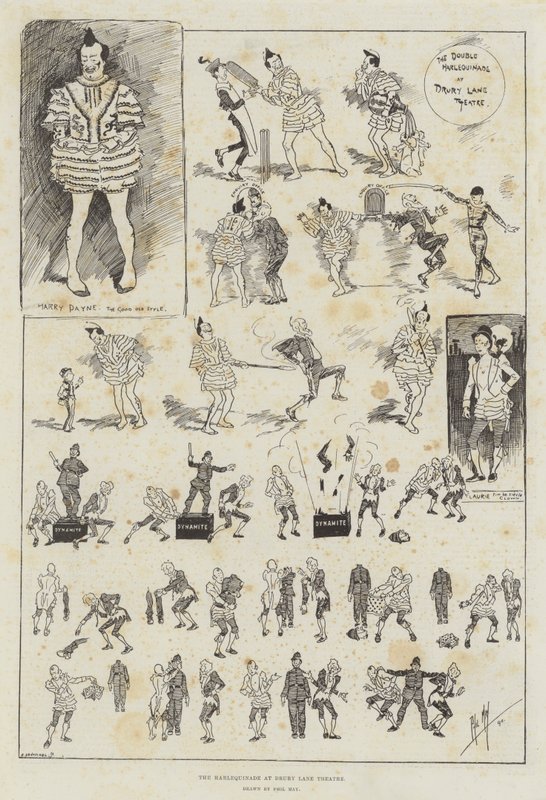 THE DOUBLE
HARLEQUINADE
AT
DRURY LANE
THEATRE.
HARRY PAYNE. THE GOOD OLD STYLE.
LAURIE
CLOWN
DYNAMITE
DYNAMITE
DYNAMITE
PHIL MAY
90.
THE HARLEQUINADE AT DRURY LANE THEATRE.
DRAWN BY PHIL MAY.